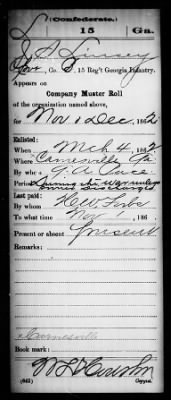 L (Confederate.)
15 Ga.
Pvt., Co. 15 Reg't Georgia Infantry.
Appears on
Company Muster Roll
of the organization named above,
for Nov & Dec, 1862
Enlisted:
When Mch 4, 1862
Where Carnesville Ga
By whom
Period During the war unless
Last paid:
By whom
To what time Nov 1, 186
Present or absent Present
Remarks:
Carnesville
Book mark:
(642) Copyist.